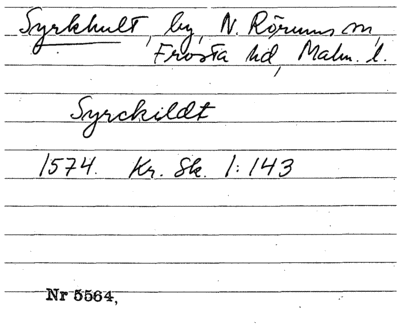 Syrkhult, by, N. Rörums sn,
Frosta hd, Malm. l.
Syrckildt
1574. Kr. Sk. 1:143
Nr 5564,